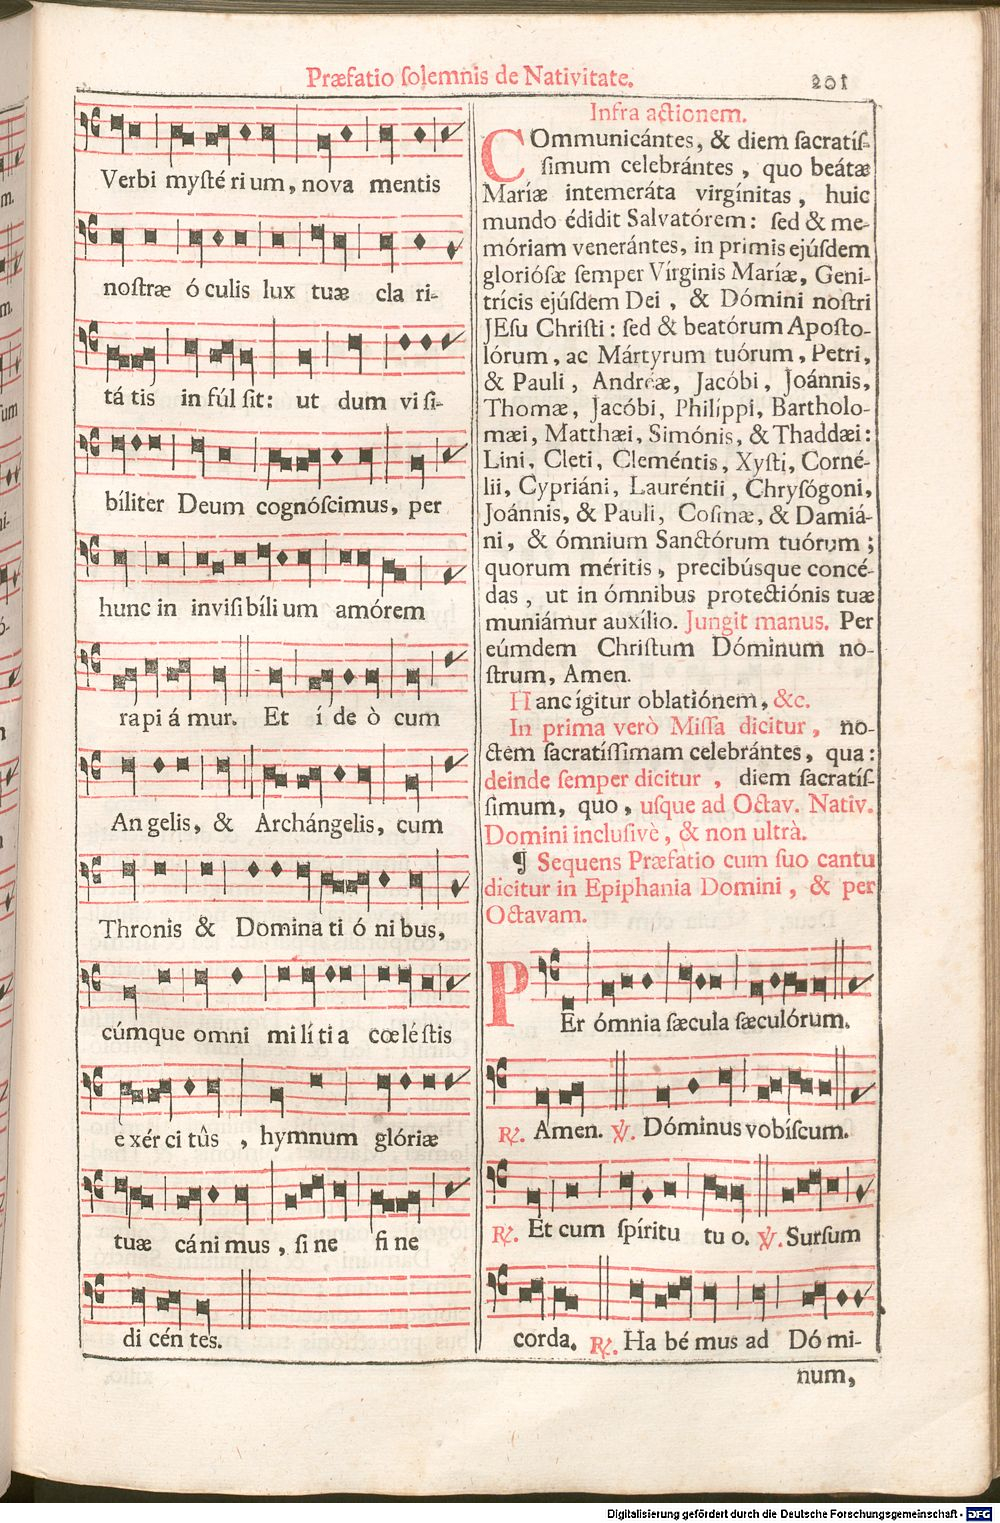 Præfatio ſolemnis de Nativitate.
201
Verbi myſté ri um, nova mentis
noſtræ ó culis lux tuæ cla ri-
tá tis in fúl ſit: ut dum vi ſi-
bíliter Deum cognóſcimus, per
hunc in inviſi bíli um amórem
ra pi á mur. Et í de ò cum
An gelis, & Archángelis, cum
Thronis & Domina ti ó ni bus,
cúmque omni mi lí ti a cœ lé ſtis
e xér ci tûs , hymnum glóriæ
tuæ cá ni mus , ſi ne fi ne
di cén tes.
Infra actionem.
COmmunicántes, & diem ſacratíſ-
ſimum celebrántes , quo beátæ
Maríæ intemeráta virgínitas , huic
mundo édidit Salvatórem : ſed & me-
móriam venerántes, in primis ejúſdem
glorióſæ ſemper Vírginis Maríæ, Geni-
trícis ejúſdem Dei , & Dómini noſtri
JEſu Chriſti : ſed & beatórum Apoſto-
lórum , ac Mártyrum tuórum , Petri,
& Pauli , Andréæ, Jacóbi , Joánnis,
Thomæ, Jacóbi, Philíppi, Bartholo-
mæi, Matthæi, Simónis, & Thaddæi :
Lini, Cleti, Cleméntis, Xyſti, Corné-
lii, Cypriáni, Lauréntii , Chryſógoni,
Joánnis, & Pauli, Coſmæ, & Damiá-
ni , & ómnium Sanctórum tuórum ;
quorum méritis , precibúsque concé-
das , ut in ómnibus protectiónis tuæ
muniámur auxílio. Jungit manus. Per
eúmdem Chriſtum Dóminum no-
ſtrum, Amen.
Hanc ígitur oblatiónem, &c.
In prima verò Miſſa dicitur , no-
ctem ſacratíſſimam celebrántes, qua :
deinde ſemper dicitur , diem ſacratíſ-
ſimum, quo , uſque ad Octav. Nativ.
Domini incluſivè, & non ultrà.
¶ Sequens Præfatio cum ſuo cantu
dicitur in Epiphania Domini , & per
Octavam.
PEr ómnia ſæcula ſæculórum.
℟. Amen. ℣. Dóminus vobíſcum.
℟. Et cum ſpíritu tu o. ℣. Surſum
corda. ℟. Ha bé mus ad Dó mi-
num,
Digitalisierung gefördert durch die Deutsche Forschungsgemeinschaft - DFG